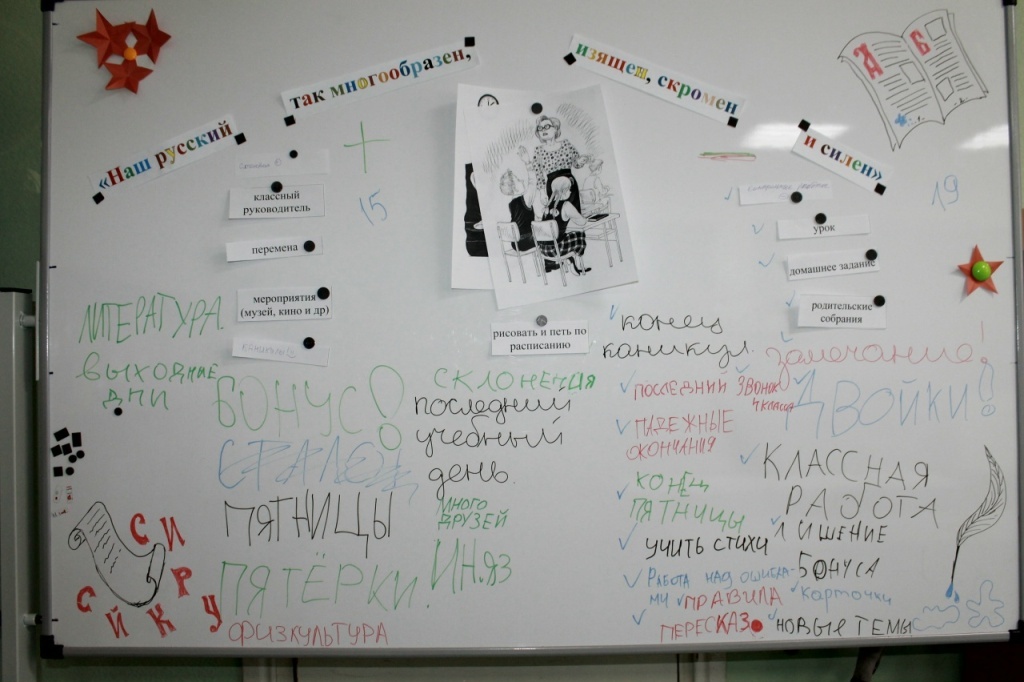 «Наш русский
так многообразен,
изящен, скромен
и силен»
+
15
классный
руководитель
перемена
мероприятия
(музей, кино и др)
каникулы
ЛИТЕРАТУРА.
ВЫХОДНЫЕ
ДНИ
БОНУС!
ПЯТНИЦЫ
ПЯТЁРКИ.
ФИЗКУЛЬТУРА
рисовать и петь по
расписанию
СКЛОНЕНИЯ
последний
учебный
день.
МНОГО
ДРУЗЕЙ
ИН.ЯЗ
19
урок
домашнее задание
родительские
собрания
конец
каникул.
замечание!
ПОСЛЕДНИЙ ЗВОНОК
4 класса
ДВОЙКИ!
ПАДЕЖНЫЕ
ОКОНЧАНИЯ
КОНЕЦ
ПЯТНИЦЫ
КЛАССНАЯ
РАБОТА
УЧИТЬ СТИХИ
ЛИШЕНИЕ
БОНУСА
РАБОТА НАД ОШИБКА-
МИ
ПРАВИЛА
КАРТОЧКИ
ПЕРЕСКАЗ
НОВЫЕ ТЕМЫ
А Б
С И
С Й К Р У